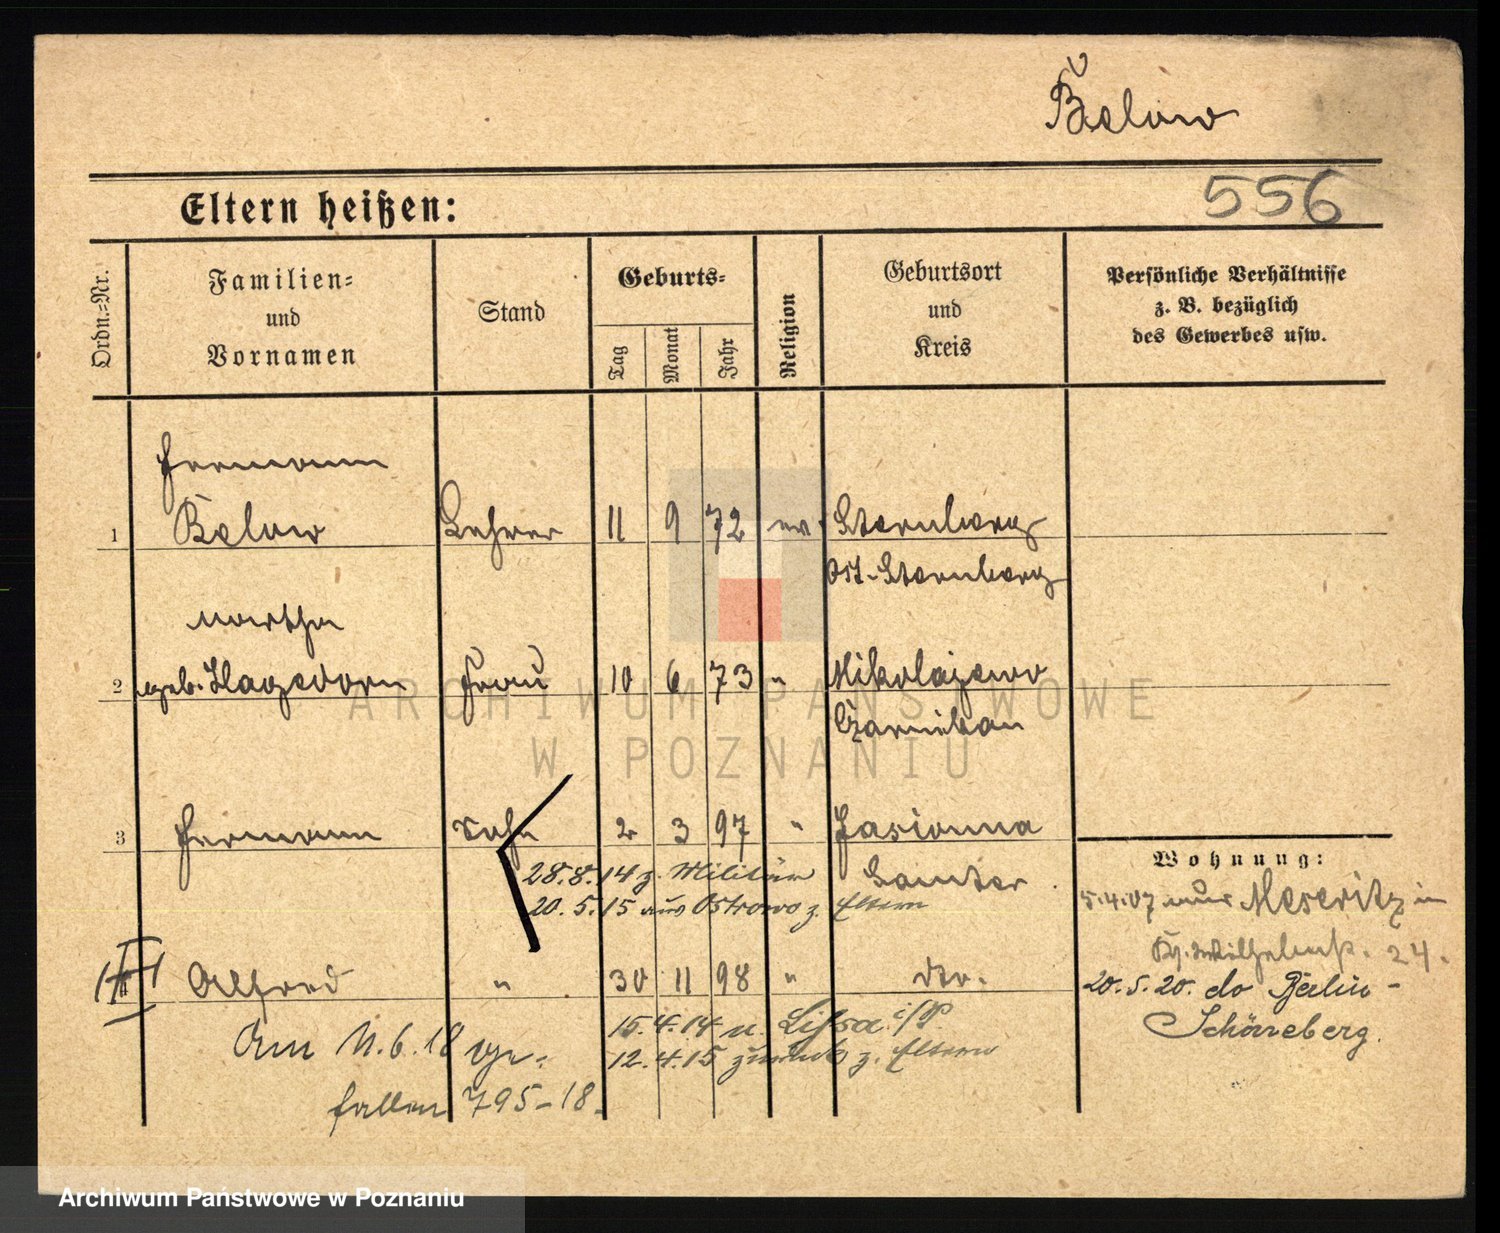 Below
556
Eltern heißen:
Ordn.-Nr.
Familien-
und
Vornamen
Stand
Geburts-
Tag
Monat
Jahr
Religion
Geburtsort
und
Kreis
Persönliche Verhältnisse
z. B. bezüglich
des Gewerbes usw.
Hermann
1 Below Lehrer 11 9 72 ev. Sternberg
Ost-Sternberg
Martha
2 geb. Hagedorn Frau 10 6 73 " Mikolajewo
Czarnikau
3 Hermann Sohn 2 3 97 " Jasionna
Samter
28.8.14 z. Militär
20.5.15 aus Ostrowo z. Eltern
Wohnung:
5.4.07 aus Meseritz in
Wilhelmstr. 24.
Alfred " 30 11 98 " do.
20.5.20. do Berlin-
Schöneberg.
15.4.14 n. Lissa i/P.
12.4.15 zurück z. Eltern
Am 11.6.18 ge-
fallen 795-18.
ARCHIWUM PAŃSTWOWE
W POZNANIU
Archiwum Państwowe w Poznaniu